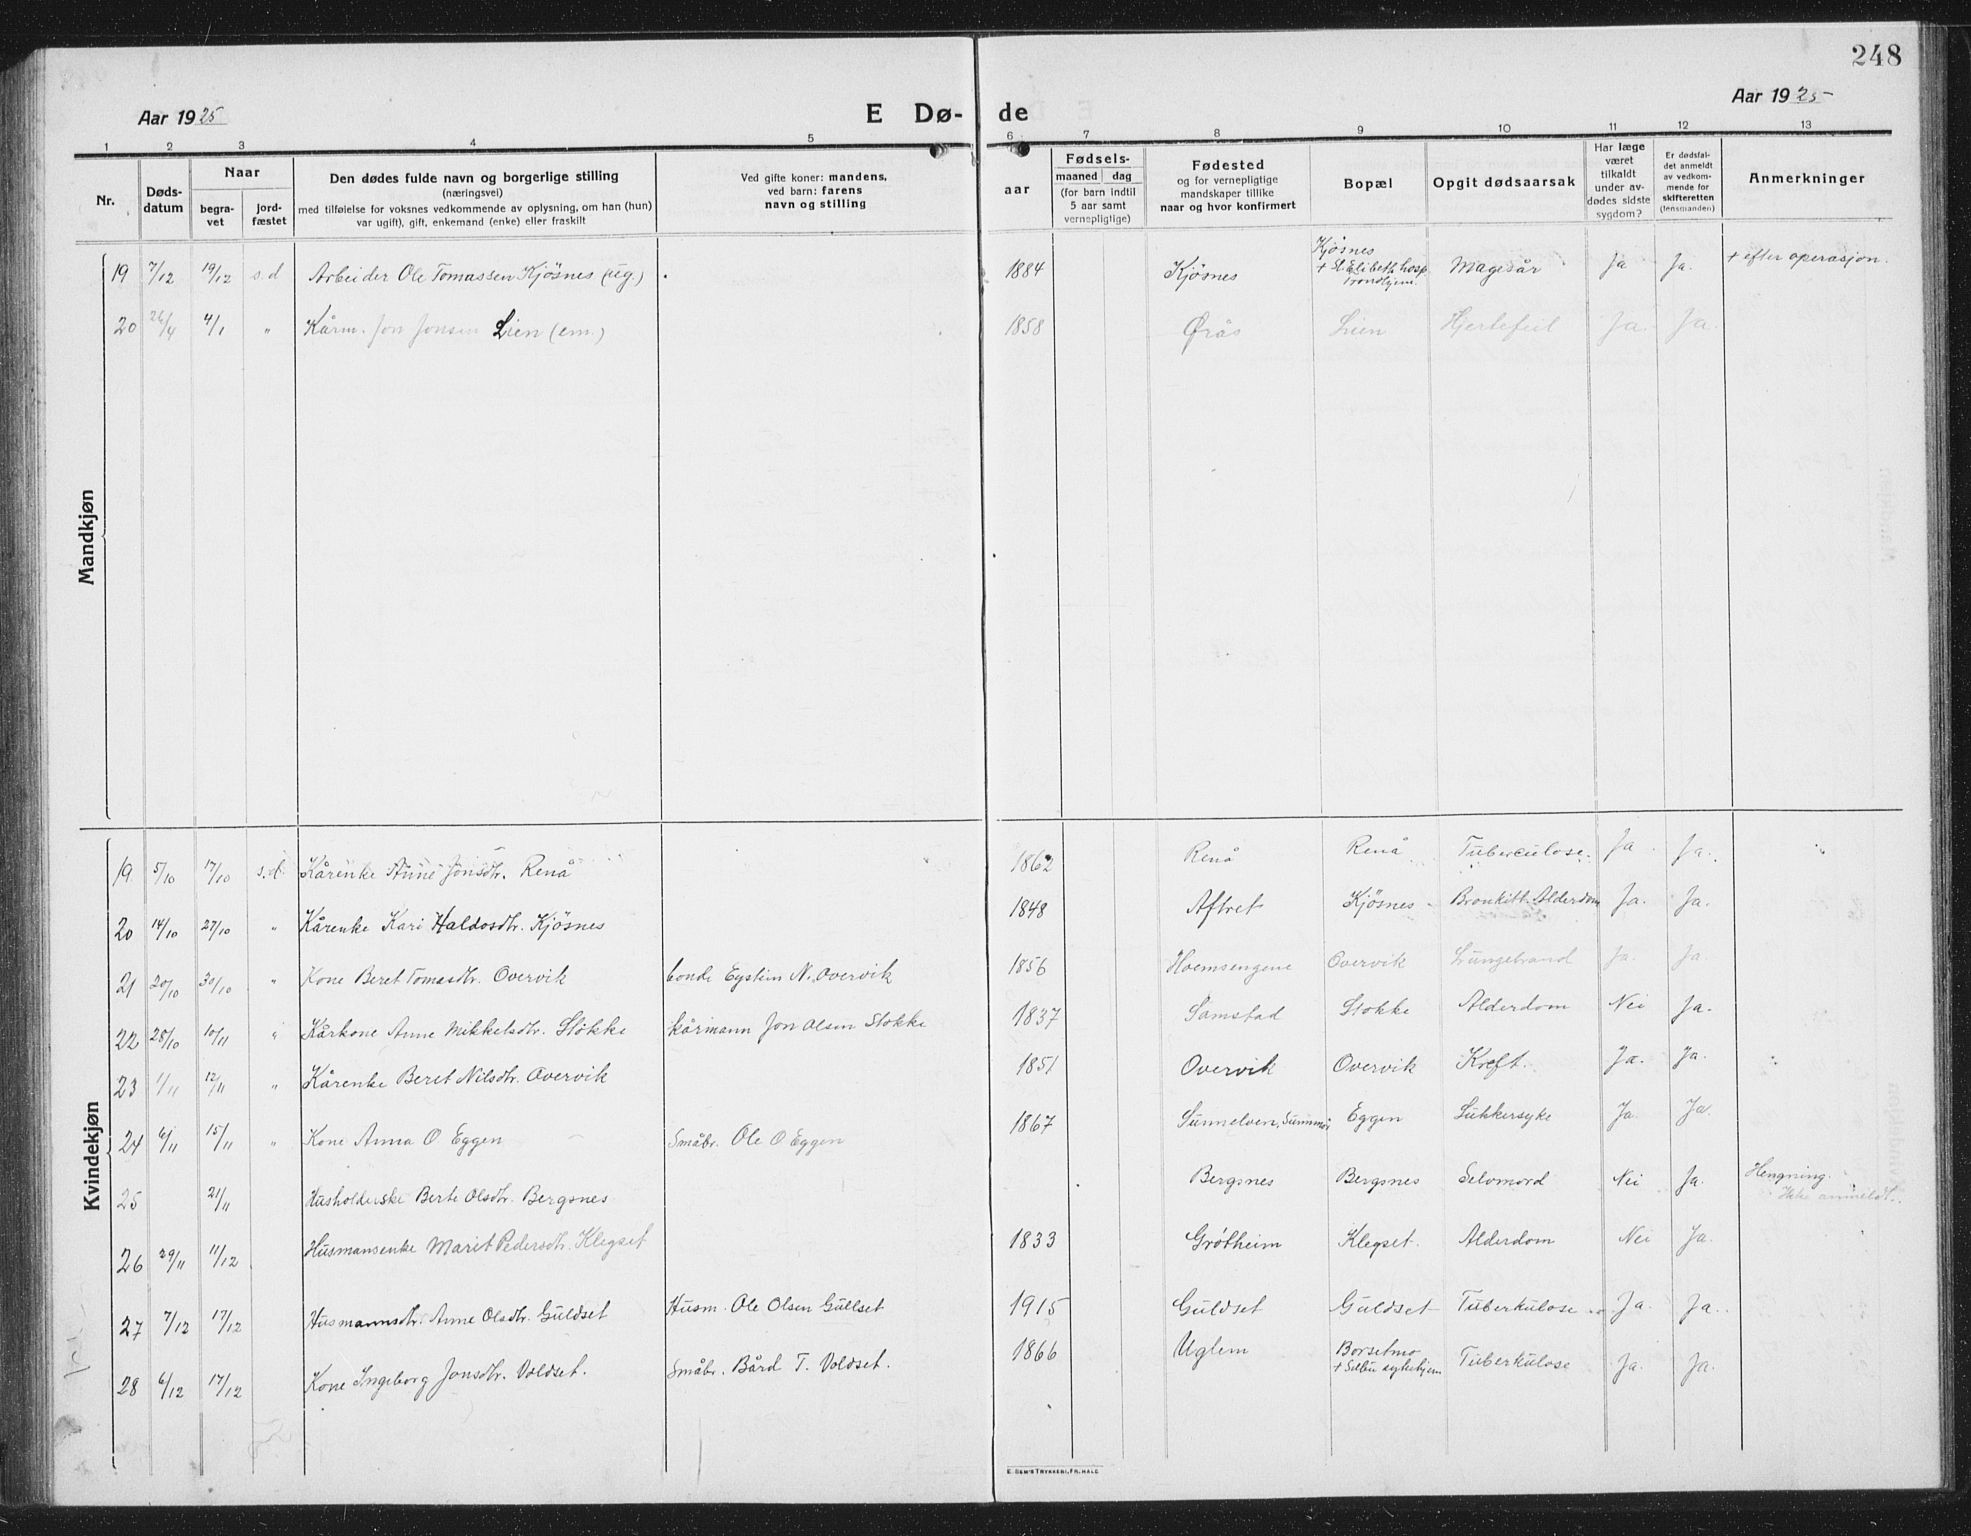 248
Aar 1925
E Dø-de
Aar 1925
1 2 3 4 5 6 7 8 9 10 11 12 13
Nr.
Døds-
datum
Naar
begra-
vet
jord-
fæstet
Den dødes fulde navn og borgerlige stilling
(næringsvei)
med tilføielse for voksnes vedkommende av oplysning, om han (hun)
var ugift), gift, enkemand (enke) eller fraskilt
Ved gifte koner: mandens,
ved barn: farens
navn og stilling
aar
Fødsels-
maaned dag
(for barn indtil
5 aar samt
vernepligtige)
Fødested
og for vernepligtige
mandskaper tillike
naar og hvor konfirmert
Bopæl
Opgit dødsaarsak
Har læge
været
tilkaldt
under av-
dødes sidste
sygdom?
Er dødsfal-
det anmeldt
av vedkom-
mende for
skifteretten
(lensmanden)
Anmerkninger
Mandkjøn
19 7/12 19/12 s.d Arbeider Ole Tomassen Kjösnes (ug.) 1884 Kjösnes Kjösnes + St. Elisbeth hosp. Trondhjem. Magesår Ja Ja. + efter operasjon.
20 4/1 " Kårm. Jon Jonsen Lien (em.) 1858 Øråś Lien Hjertefeil Ja. Ja.
Kvindekjøn
19. 5/10 17/10 s.d. Kårenke Anne Jonsdtr. Renå 1862 Renå Renå Tuberculose. Ja Ja.
20 14/10 27/10 " Kårenke Kari Haldosdtr. Kjösnes 1848 Aftret Kjösnes Bronkitt. Alderdom Ja. Ja.
21 20/10 30/10 " Kone Beret Tomasdtr. Overvik bonde Eystein N. Overvik 1856 Hoemsengene Overvik Lungebrand Ja. Ja.
22 28/10 10/11 " Kårkone Anne Mikkelsdtr. Stokke kårmann Jon Olsen Stokke 1837 Samstad Stokke Alderdom Nei Ja.
23 1/11 12/11 " Kårenke Beret Nilsdtr. Overvik 1851 Overvik Overvik Kreft. Ja. Ja.
24 6/11 15/11 " Kone Anna O Eggen Småbr. Ole O Eggen 1867 Sunnelven, Sunnmör Eggen Sukkersyke Ja. Ja.
25 21/11 Husholderske Berte Olsdtr. Bergsnes Bergsnes Bergsnes Selvmord Nei Ja. Hengning. Ikke anmeldt.
26 29/11 11/12 Husmansenke Marit Pedersdtr. Klegset 1833 Grötheim Klegset. Alderdom Nei Ja.
27 7/12 17/12 Husmannsdtr. Anne Olsdtr. Guldset Husm. Ole Olsen Gullset 1915 Guldset Guldset Tuberkulose Ja. Ja.
28 6/12 17/12 Kone Ingeborg Jonsdtr. Voldset. Småbr. Bård T. Voldset. 1866 Uglem Borsetmo + Selbu sykehjem Tuberkulose Ja. Ja.
E. SEM'S TRYKKERI, FR.HALD